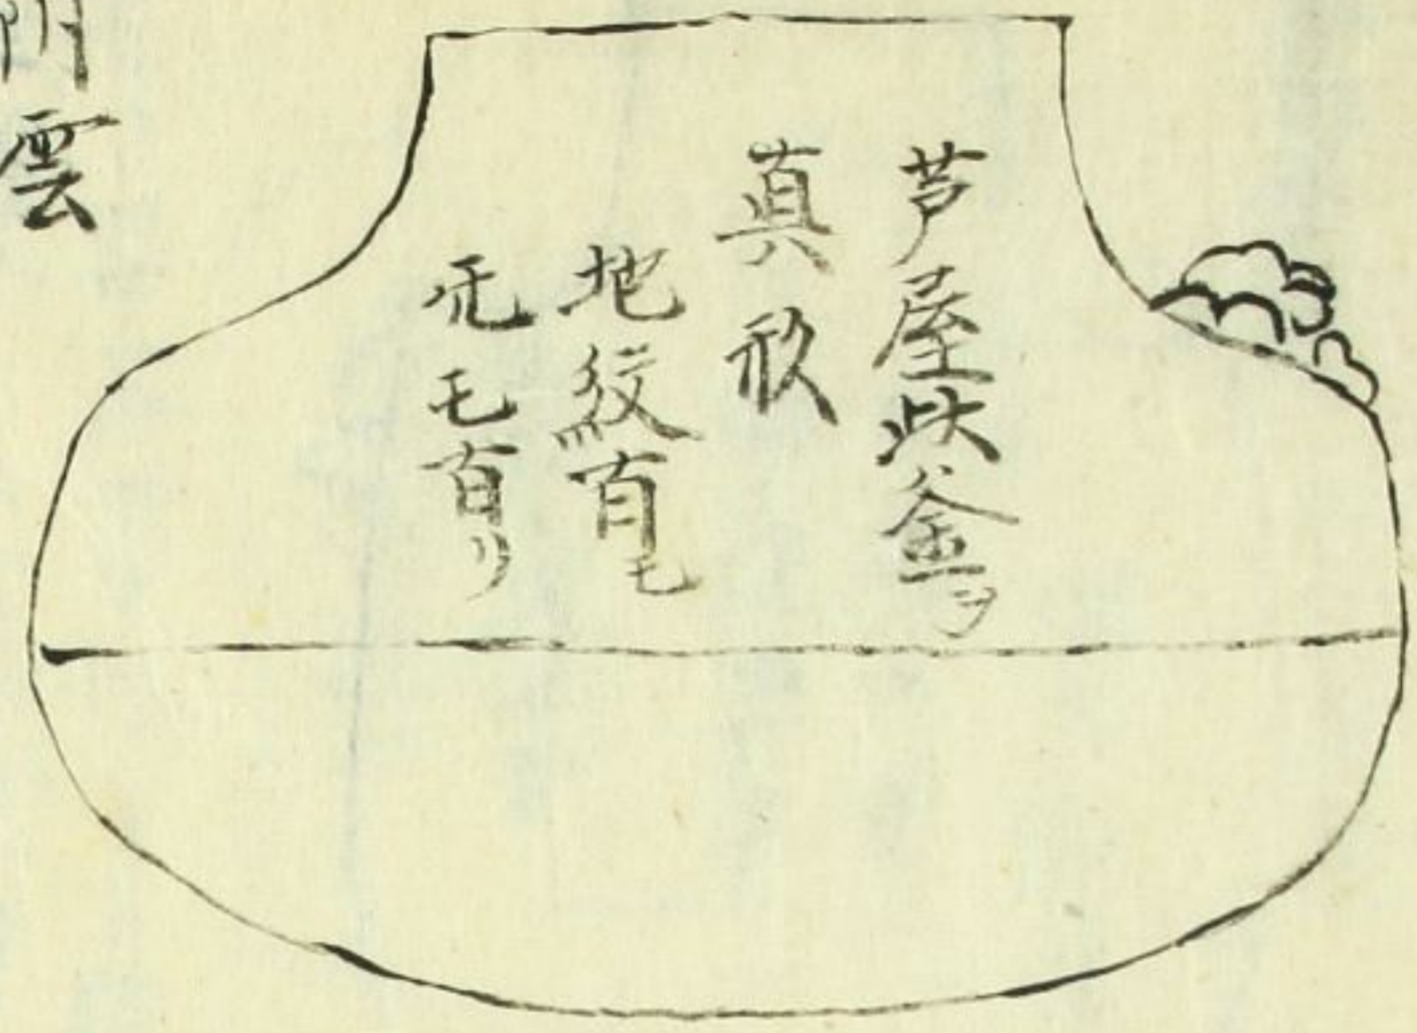 芦屋此釜ヲ
真形
地紋有モ
无モ有リ
雲